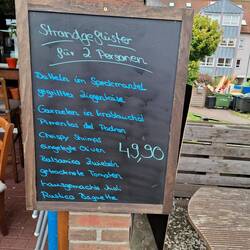 Strandgeflüster
für 2 Personen
Datteln im Speckmantel
gegrillter Ziegenkäse
Garnelen in Knoblauchöl
Pimentos del Padron
Chrispy Shrimps
eingelegte Oliven
49,90
Balsamico Zwiebeln
getrocknete Tomaten
hausgemachte Aioli
Rustico Baguette